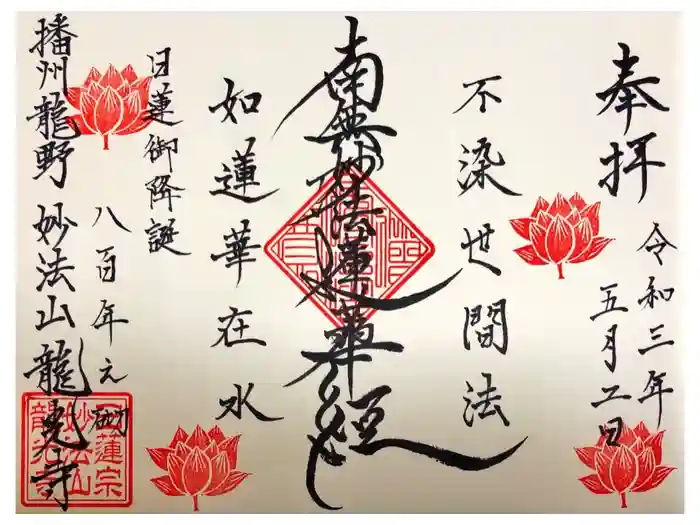 奉拝
令和三年
五月二日
不染世間法
南無妙法蓮華経
如蓮華在水
日蓮御降誕
八百年之砌
播州龍野 妙法山 龍光寺
日蓮宗
妙法山
龍光寺